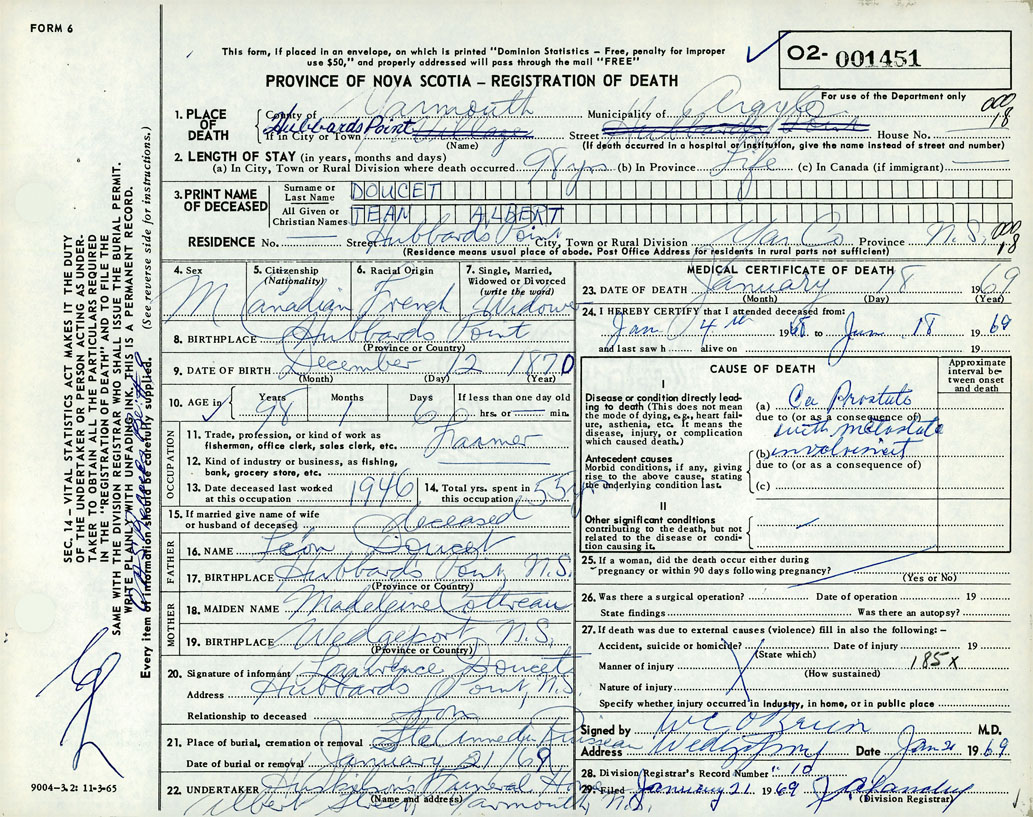 FORM 6
This form, if placed in an envelope, on which is printed "Dominion Statistics – Free, penalty for improper
use $50," and properly addressed will pass through the mail "FREE"
02- 001451
PROVINCE OF NOVA SCOTIA – REGISTRATION OF DEATH
For use of the Department only
1. PLACE OF DEATH
County of Yarmouth Municipality of Argyle 000 18
If in City or Town Hubbards Point Village Street Hubbards Point House No.
(Name) (If death occurred in a hospital or institution, give the name instead of street and number)
2. LENGTH OF STAY (in years, months and days)
(a) In City, Town or Rural Division where death occurred 98 yrs (b) In Province Life (c) In Canada (if immigrant) —
3. PRINT NAME OF DECEASED
Surname or Last Name DOUCET
All Given or Christian Names JEAN ALBERT
RESIDENCE No. — Street Hubbards Point City, Town or Rural Division Yar Co Province N.S. 000 18
(Residence means usual place of abode. Post Office Address for residents in rural parts not sufficient)
4. Sex M
5. Citizenship (Nationality) Canadian
6. Racial Origin French
7. Single, Married, Widowed or Divorced (write the word) Widower
8. BIRTHPLACE Hubbards Point
(Province or Country)
9. DATE OF BIRTH December 12 1870
(Month) (Day) (Year)
10. AGE in Years 98 Months 1 Days 6 If less than one day old
hrs. or — min.
OCCUPATION
11. Trade, profession, or kind of work as fisherman, office clerk, sales clerk, etc. Farmer
12. Kind of industry or business, as fishing, bank, grocery store, etc.
13. Date deceased last worked at this occupation 1946
14. Total yrs. spent in this occupation 55 yrs
15. If married give name of wife or husband of deceased deceased
FATHER
16. NAME Léon Doucet
17. BIRTHPLACE Hubbards Point, N.S.
(Province or Country)
MOTHER
18. MAIDEN NAME Madeleine Cottreau
19. BIRTHPLACE Wedgeport, N.S.
(Province or Country)
20. Signature of informant Lawrence Doucet
Address Hubbards Point, N.S.
Relationship to deceased Son
21. Place of burial, cremation or removal Ste Anne du Ruisseau
Date of burial or removal January 21 1969
22. UNDERTAKER Huskilson's Funeral Home
(Name and address)
Albert Street, Yarmouth, N.S.
MEDICAL CERTIFICATE OF DEATH
23. DATE OF DEATH January 18 1969
(Month) (Day) (Year)
24. I HEREBY CERTIFY that I attended deceased from:
Jan 4th 1968 to Jan. 18 1969
and last saw h alive on 19
CAUSE OF DEATH
Approximate interval between onset and death
I
Disease or condition directly leading to death (This does not mean the mode of dying, e.g., heart failure, asthenia, etc. It means the disease, injury, or complication which caused death.)
(a) Ca Prostate
due to (or as a consequence of)
with metastate
Antecedent causes
Morbid conditions, if any, giving rise to the above cause, stating the underlying condition last.
(b) involvement
due to (or as a consequence of)
(c)
II
Other significant conditions
contributing to the death, but not related to the disease or condition causing it.
25. If a woman, did the death occur either during pregnancy or within 90 days following pregnancy?
(Yes or No)
26. Was there a surgical operation? Date of operation 19
State findings Was there an autopsy?
27. If death was due to external causes (violence) fill in also the following: –
Accident, suicide or homicide? Date of injury 19
(State which)
Manner of injury 185X
(How sustained)
Nature of injury
Specify whether injury occurred in industry, in home, or in public place
Signed by W C O'Brien M.D.
Address Date Jan 21 1969
28. Division Registrar's Record Number 10
29. Filed January 21 1969
(Division Registrar)
9004-3.2: 11-3-65
SEC. 14 – VITAL STATISTICS ACT MAKES IT THE DUTY
OF THE UNDERTAKER OR PERSON ACTING AS UNDER-
TAKER TO OBTAIN ALL THE PARTICULARS REQUIRED
IN THE "REGISTRATION OF DEATH" AND TO FILE THE
SAME WITH THE DIVISION REGISTRAR WHO SHALL ISSUE THE BURIAL PERMIT.
WRITE PLAINLY WITH UNFADING INK. THIS IS A PERMANENT RECORD.
Every item of information should be carefully supplied. (See reverse side for instructions.)